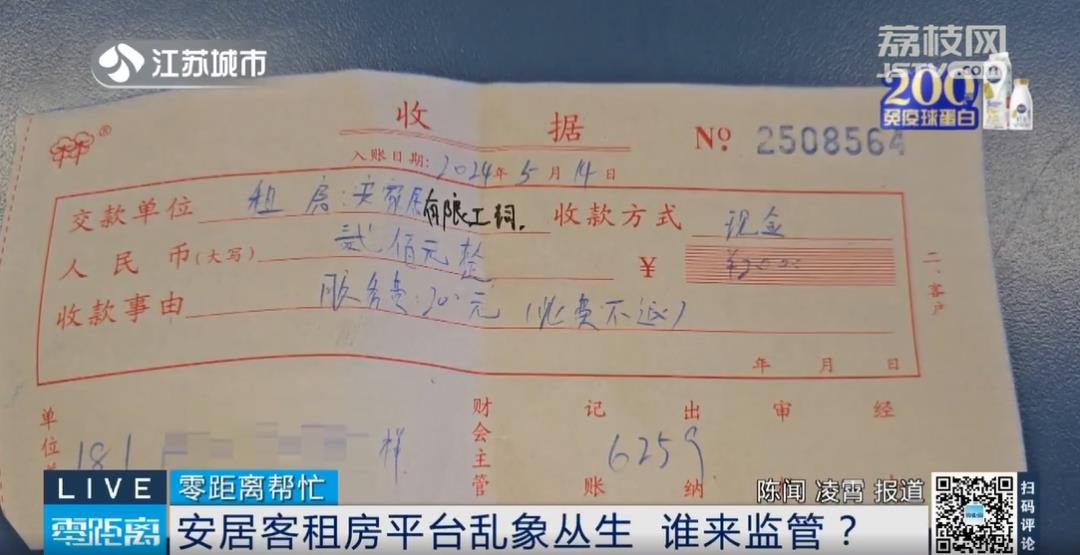 江苏城市
荔枝网
JSTV.COM
200
免疫球蛋白
收 据
No 2508564
®
入账日期: 2024年 5 月 14 日
交款单位 租房:安家居有限工词. 收款方式 现金
人民币(大写) 贰佰元整 ¥ ¥200.00
收款事由 服务费:200元 (此费不返)
年 月 日
二、客户
单位
财会主管
记账
出纳
审
经
181
样
6259
LIVE 零距离帮忙
陈闻 凌霄 报道
零距离
安居客租房平台乱象丛生 谁来监管?
扫码评论